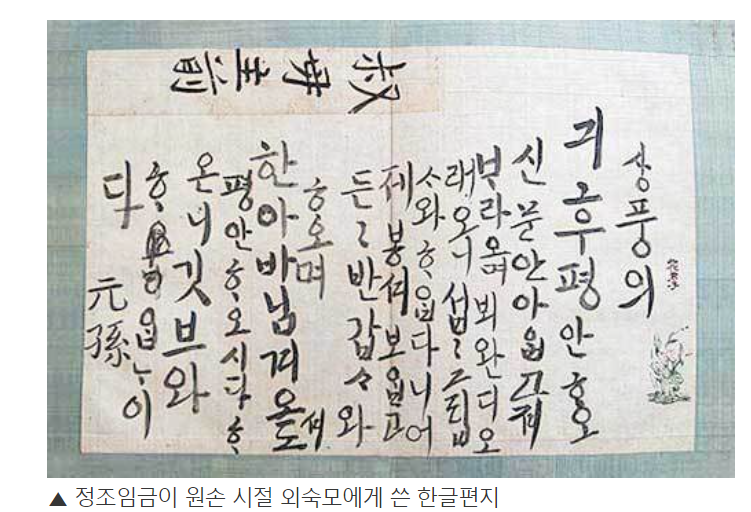 叔母主前
상풍의
긔후평안ᄒᆞ오
신 문안 아ᄋᆞᆸ고져
ᄇᆞ라오며 뵈완디 오
래오니 섭〻 그립
ᄉᆞ와 ᄒᆞᄋᆞᆸ다니 어
제 봉셔 보ᄋᆞᆸ고
든〻 반갑ᄉᆞ와
ᄒᆞ오며
한아바님 겨오셔도
평안ᄒᆞ오시다 ᄒᆞ
온니 깃브와
ᄒᆞᄋᆞᆸᄂᆞ이
다
元孫
▲ 정조임금이 원손 시절 외숙모에게 쓴 한글편지